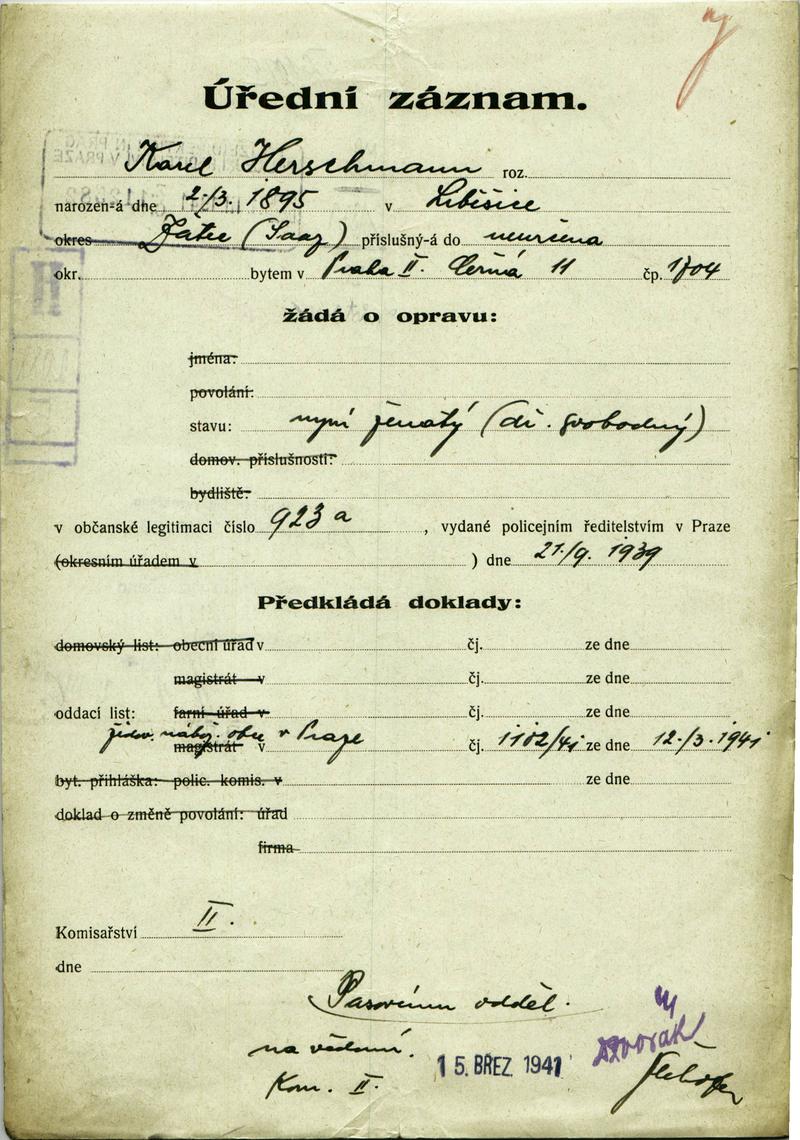 Úřední záznam.
Karel Herschmann roz.
narozen-á dne 2./3. 1895 v Liběšice
okres Žatec (Saaz) příslušný-á do neurčena
okr. bytem v Praha II. Černá 11 čp. 1704
žádá o opravu:
jména:
povolání:
stavu: nyní ženatý (dř. svobodný)
domov. příslušnosti:
bydliště:
v občanské legitimaci číslo 923 a , vydané policejním ředitelstvím v Praze
(okresním úřadem v ) dne 21./9. 1939
Předkládá doklady:
domovský list: obecní úřad v čj. ze dne
magistrát v čj. ze dne
oddací list: farní úřad v čj. ze dne
židov. nábož. obec v Praze
magistrát v čj. 1102/41 ze dne 12./3. 1941
byt. přihláška: polic. komis. v ze dne
doklad o změně povolání: úřad
firma
Komisařství II.
dne
Pasovému odděl.
na vědomí.
Kom. II.
15. BŘEZ. 1941
Dvořák